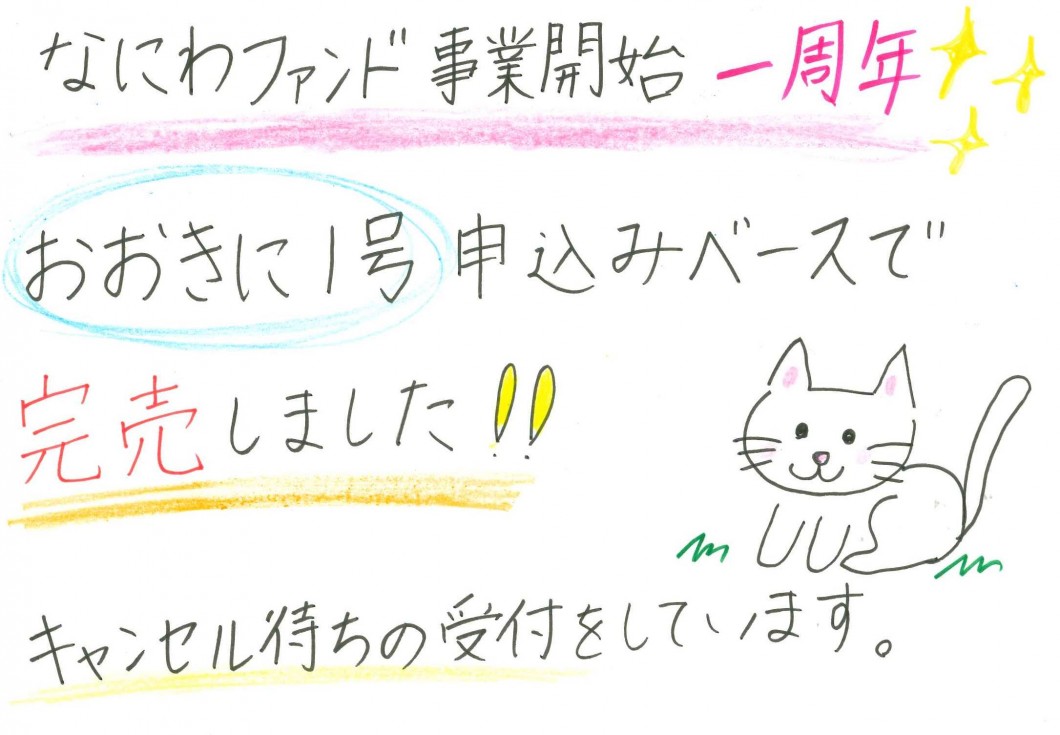 なにわファンド事業開始一周年
おおきに1号申込みベースで
完売しました!!
キャンセル待ちの受付をしています。